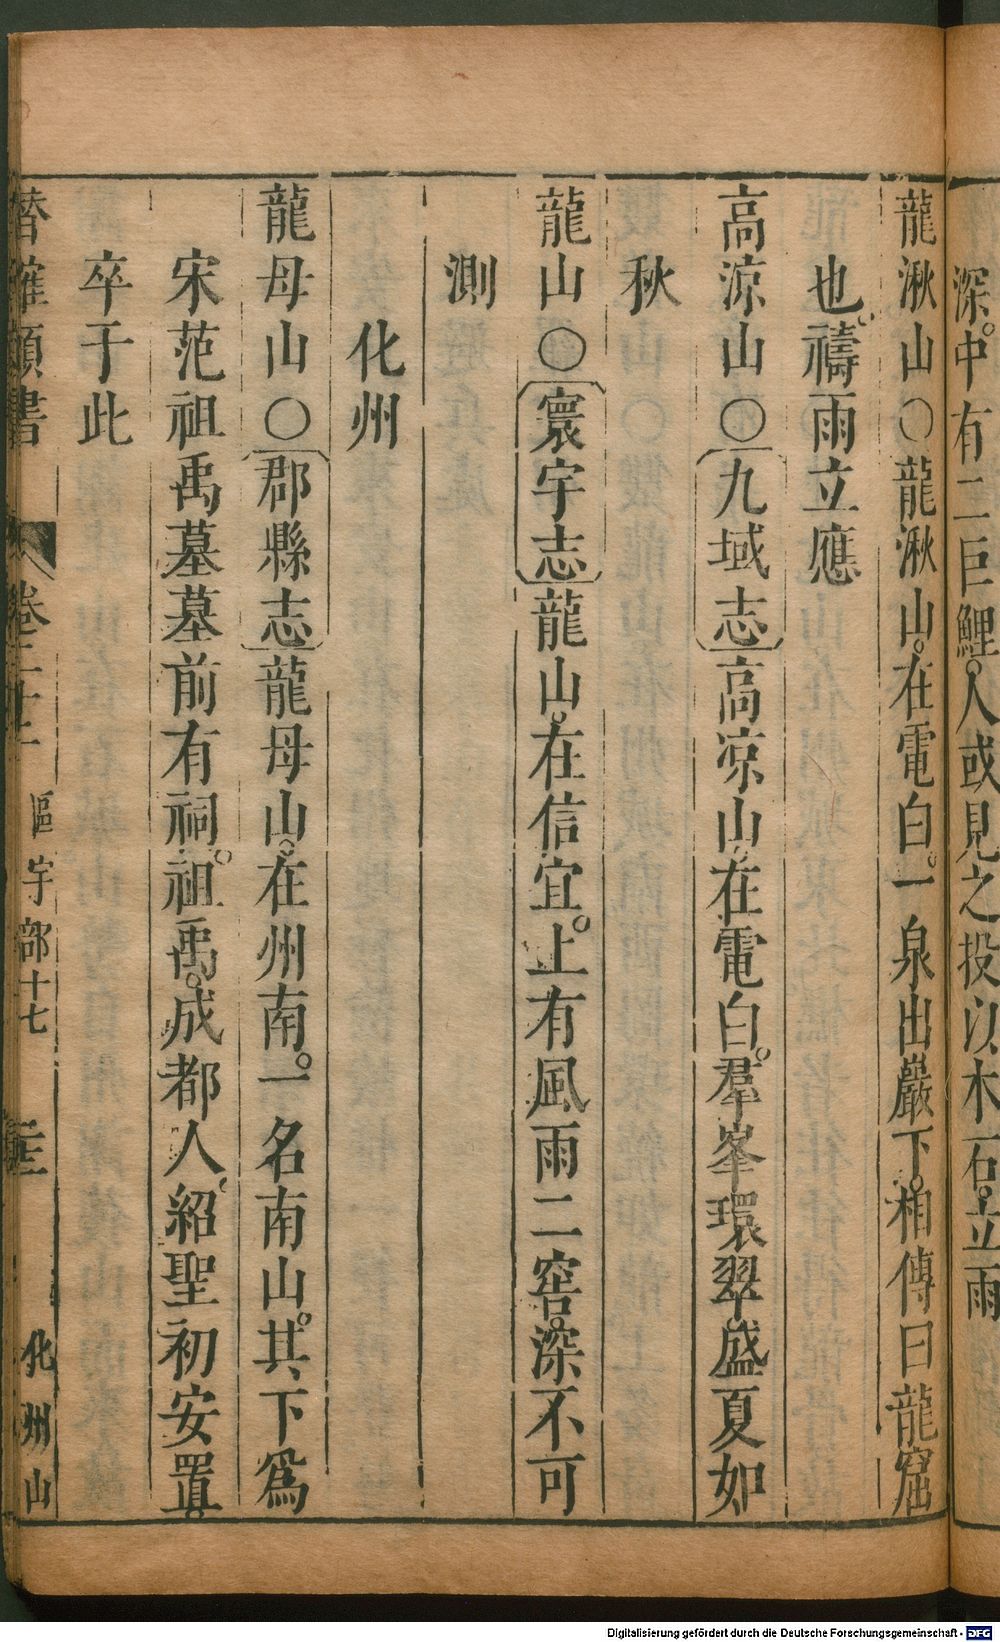 深。中有二巨鯉。人或見之投以木石。立雨
龍湫山○龍湫山。在電白。一泉出巖下。相傳曰龍窟
也。禱雨立應
高涼山○〔九域志〕高涼山。在電白。羣峯環翠。盛夏如
秋
龍山○〔寰宇志〕龍山。在信宜。上有風雨二窖。深不可
測
化州
龍母山○〔郡縣志〕龍母山。在州南。一名南山。其下爲
宋范祖禹墓墓前有祠。祖禹。成都人。紹聖初安置。
卒于此
潛確類書 卷二十一 區宇部十七 二十三 化州山
Digitalisierung gefördert durch die Deutsche Forschungsgemeinschaft - DFG